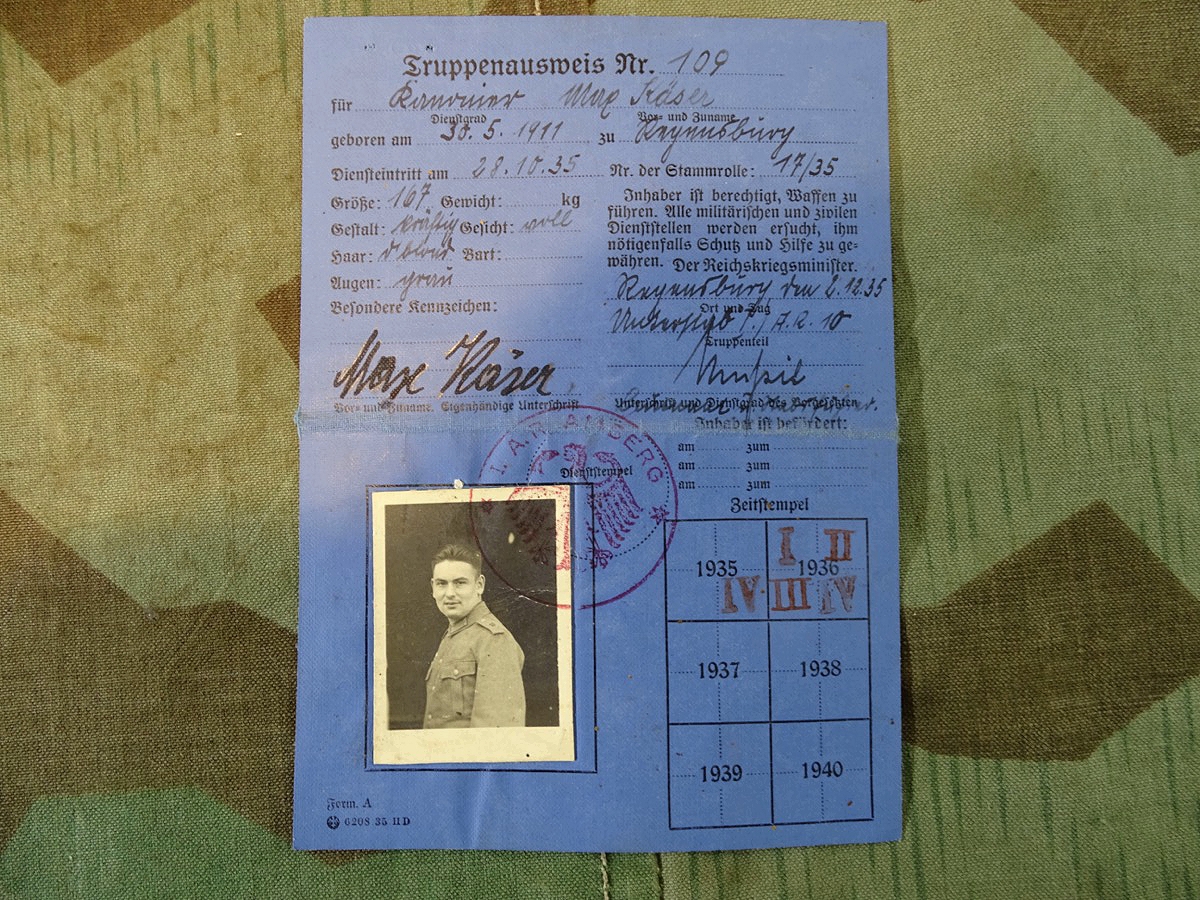 Truppenausweis Nr. 109
für Kanonier Max Käser
Dienstgrad Vor- und Zuname
geboren am 30.5.1911 zu Regensburg
Diensteintritt am 28.10.35 Nr. der Stammrolle: 17/35
Größe: 167 Gewicht: kg
Gestalt: kräftig Gesicht: voll
Haar: d blond Bart:
Augen: grau
Besondere Kennzeichen:
Max Käser
Vor- und Zuname. Eigenhändige Unterschrift
Inhaber ist berechtigt, Waffen zu
führen. Alle militärischen und zivilen
Dienststellen werden ersucht, ihm
nötigenfalls Schutz und Hilfe zu ge-
währen. Der Reichskriegsminister.
Regensburg den 2.12.35
Ort und Tag
A.R. 10
Truppenteil
Unterschrift und Dienstgrad des Vorgesetzten
Inhaber ist befördert:
am zum
am zum
am zum
I. A.R. AMBERG
Dienststempel
Zeitstempel
I II
1935 1936
IV III IV
1937 1938
1939 1940
Form. A
6208 35 II D